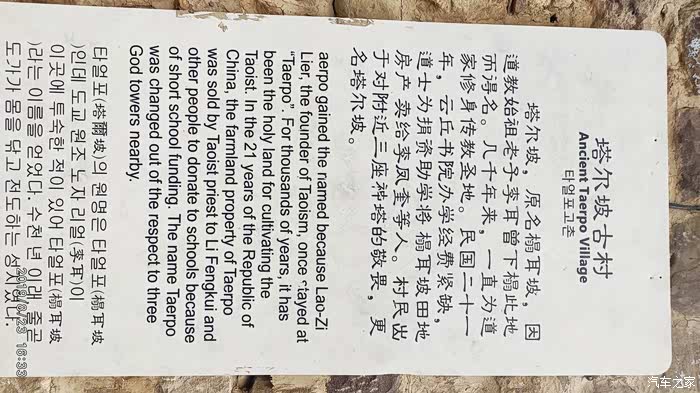 塔尔坡古村
Ancient Taerpo Village
타얼포고촌
塔尔坡，原名榻耳坡，因
道教始祖老子李耳曾下榻此地
而得名。几千年来，一直为道
家修身传教圣地。民国二十一
年，云丘书院办学经费紧缺，
道士为捐资助学将榻耳坡田地
房产卖给李凤奎等人。村民出
于对附近三座神塔的敬畏，更
名塔尔坡。
aerpo gained the named because Lao-Zi
Lier, the founder of Taoism, once stayed at
"Taerpo". For thousands of years, it has
been the holy land for cultivating the
Taoist. In the 21 years of the Republic of
China, the farmland property of Taerpo
was sold by Taoist priest to Li Fengkui and
other people to donate to schools because
of short school funding. The name Taerpo
was changed out of the respect to three
God towers nearby.
타얼포(塔爾坡)의 원명은 타얼포(榻耳坡
)인데 도교 원조 노자 리얼(李耳)이
이곳에 투숙한 적이 있어 타얼포(榻耳坡
)라는 이름을 얻었다. 수천 년 이래 줄곧
도가가 몸을 닦고 전도하는 성지였다.
2019/6/23 16:33
汽车之家